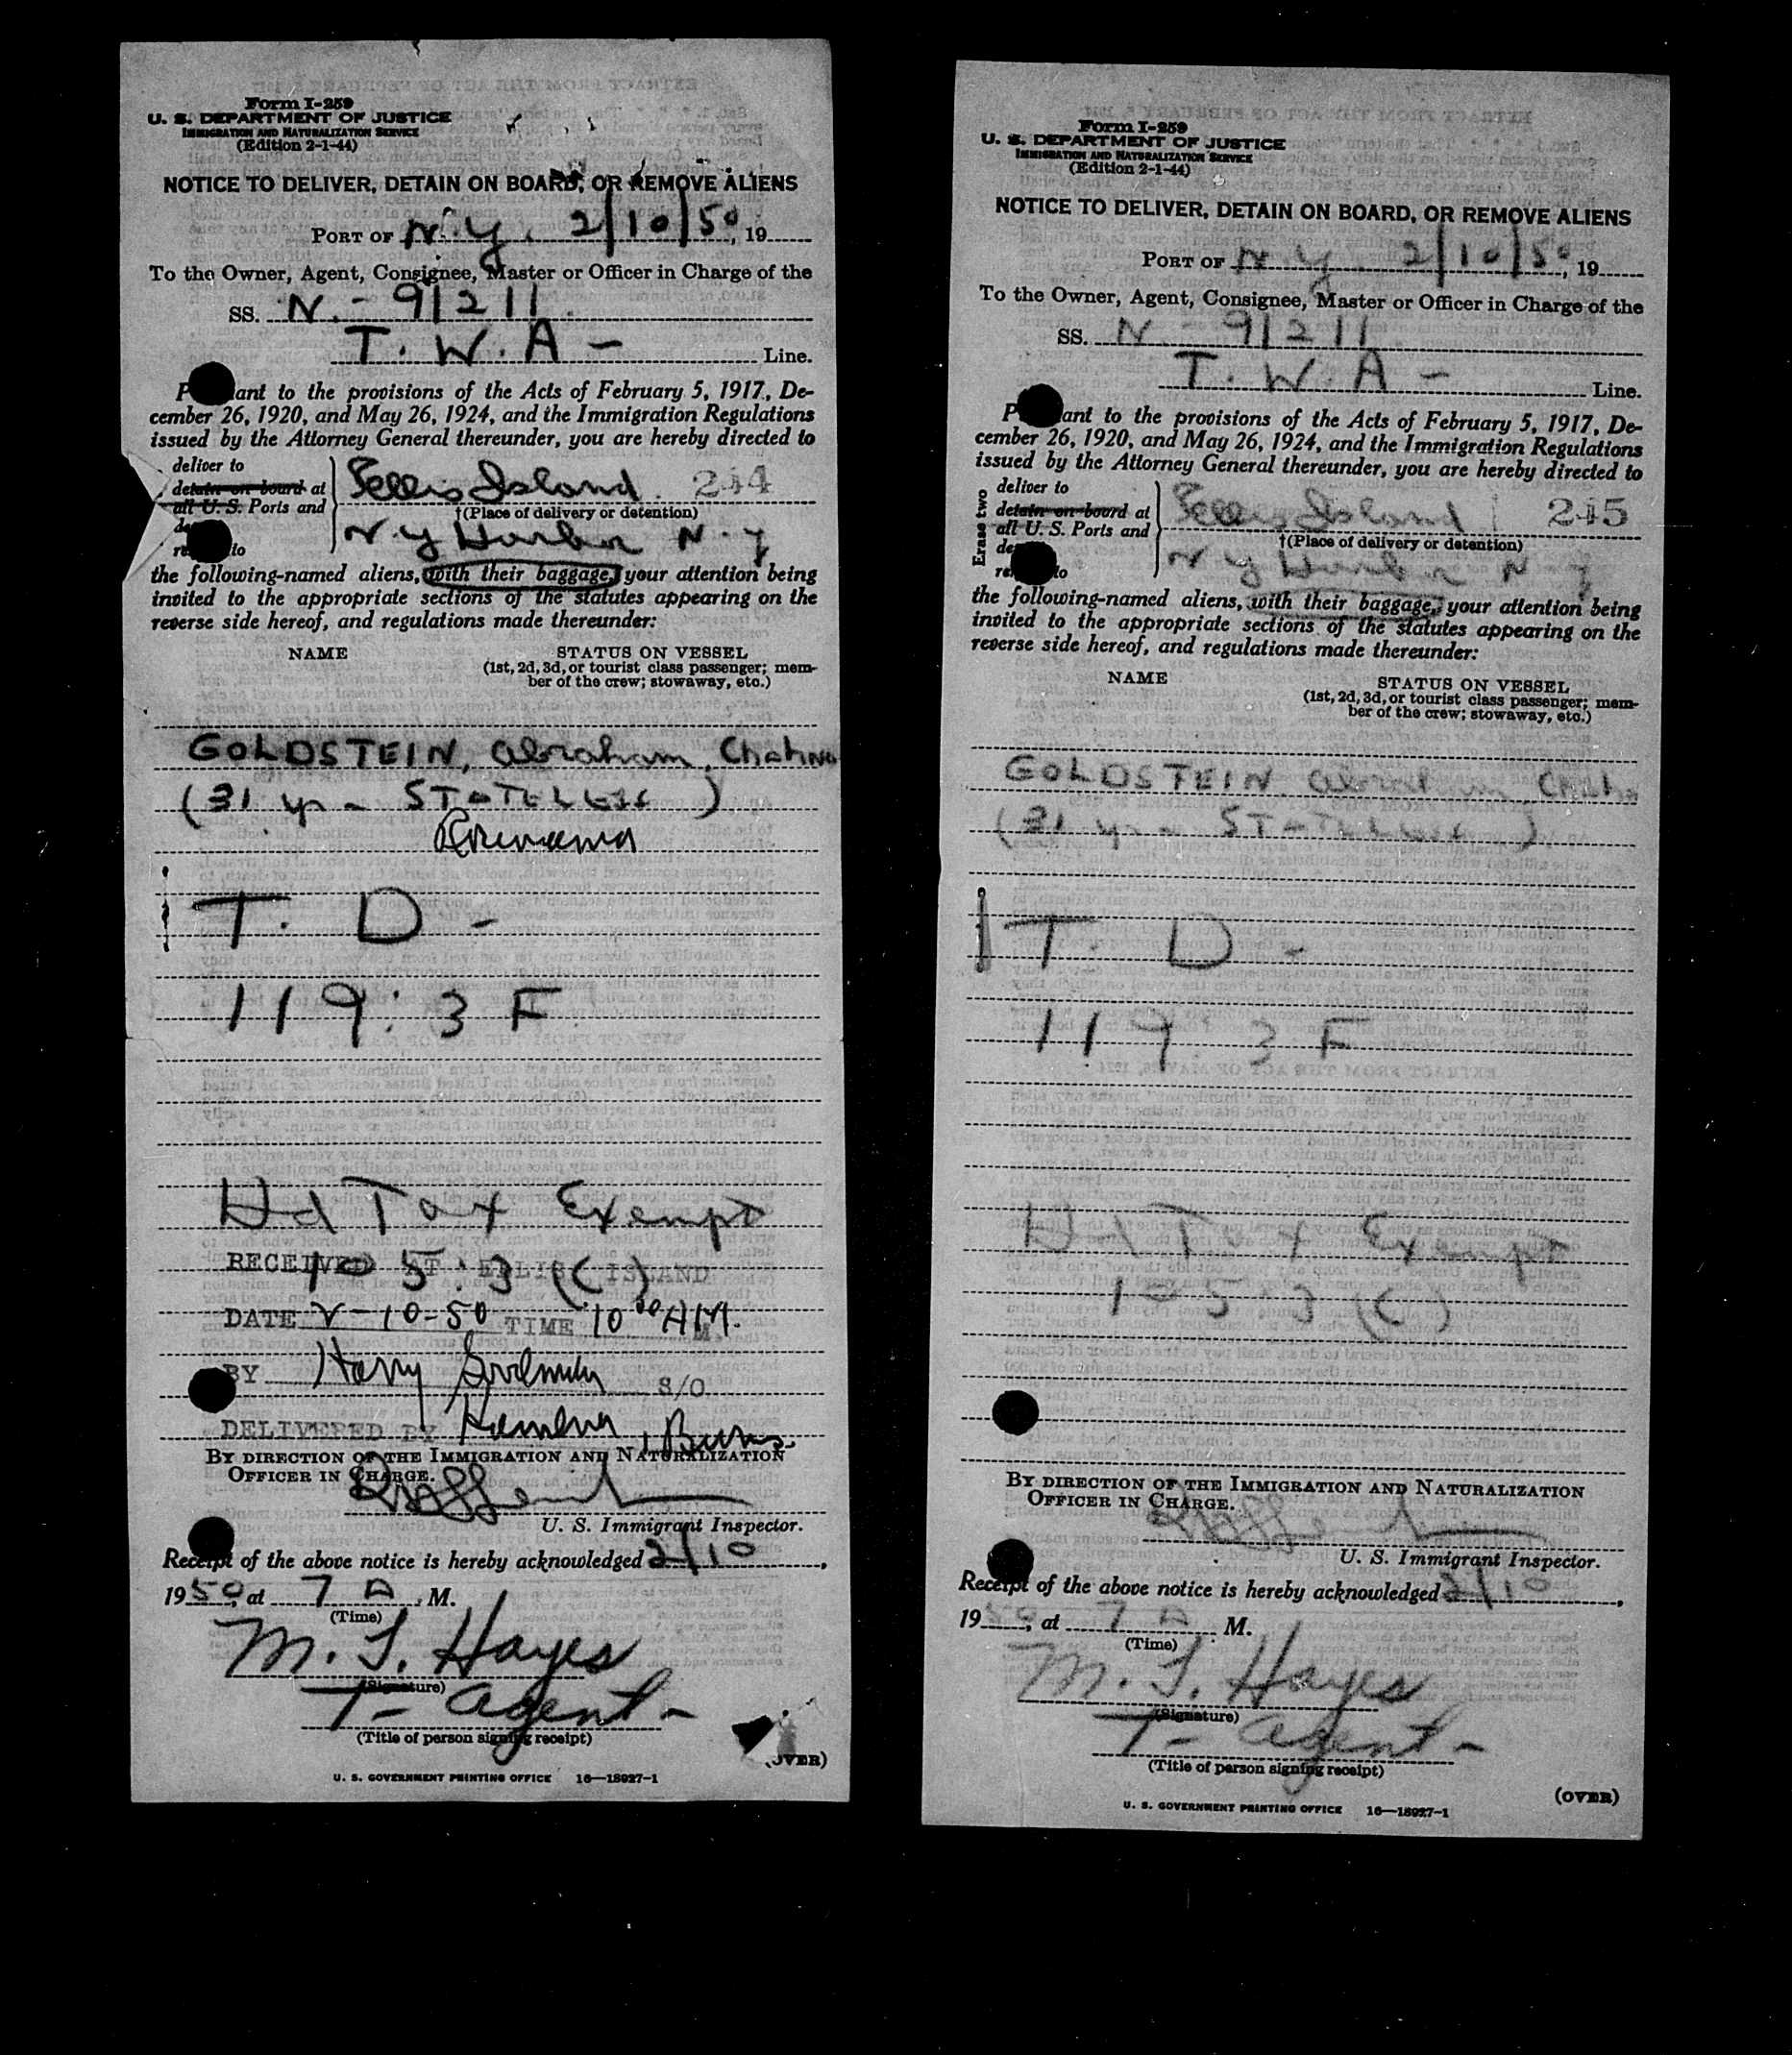 Form I-259
U. S. DEPARTMENT OF JUSTICE
IMMIGRATION AND NATURALIZATION SERVICE
(Edition 2-1-44)
NOTICE TO DELIVER, DETAIN ON BOARD, OR REMOVE ALIENS
PORT OF N.Y. 2/10/50, 19
To the Owner, Agent, Consignee, Master or Officer in Charge of the
SS. N.- 91211
T. W. A - Line.
P ant to the provisions of the Acts of February 5, 1917, De-
cember 26, 1920, and May 26, 1924, and the Immigration Regulations
issued by the Attorney General thereunder, you are hereby directed to
deliver to
detain on board at
all U. S. Ports and
de
re to
Ellis Island 244
†(Place of delivery or detention)
N.Y Harbor N.Y
the following-named aliens, with their baggage, your attention being
invited to the appropriate sections of the statutes appearing on the
reverse side hereof, and regulations made thereunder:
NAME
STATUS ON VESSEL
(1st, 2d, 3d, or tourist class passenger; mem-
ber of the crew; stowaway, etc.)
GOLDSTEIN, Abraham, Chahna
(31 yr - STATELESS)
Roumania
T. D -
119: 3 F
Hd Tax Exempt
105.3 (C)
RECEIVED AT ELLIS ISLAND
DATE 2-10-50 TIME 10 00 AM.
BY Harry S/O
DELIVERED BY Burns
BY DIRECTION OF THE IMMIGRATION AND NATURALIZATION
OFFICER IN CHARGE.
U. S. Immigrant Inspector.
Receipt of the above notice is hereby acknowledged 2/10,
1950, at 7 A. M.
(Time)
M. J. Hayes
(Signature)
T- Agent -
(Title of person signing receipt)
(OVER)
U. S. GOVERNMENT PRINTING OFFICE 16—18927-1
Form I-259
U. S. DEPARTMENT OF JUSTICE
IMMIGRATION AND NATURALIZATION SERVICE
(Edition 2-1-44)
NOTICE TO DELIVER, DETAIN ON BOARD, OR REMOVE ALIENS
PORT OF N.Y. 2/10/50, 19
To the Owner, Agent, Consignee, Master or Officer in Charge of the
SS. N - 91211
T. W. A - Line.
P ant to the provisions of the Acts of February 5, 1917, De-
cember 26, 1920, and May 26, 1924, and the Immigration Regulations
issued by the Attorney General thereunder, you are hereby directed to
Erase two
deliver to
detain on board at
all U. S. Ports and
de
re to
Ellis Island 245
†(Place of delivery or detention)
N Y Harbor N Y
the following-named aliens, with their baggage, your attention being
invited to the appropriate sections of the statutes appearing on the
reverse side hereof, and regulations made thereunder:
NAME
STATUS ON VESSEL
(1st, 2d, 3d, or tourist class passenger; mem-
ber of the crew; stowaway, etc.)
GOLDSTEIN, Abraham, Chahna
(31 yr - STATELESS)
T D -
119 3 F
Hd Tax Exempt
105.3 (C)
BY DIRECTION OF THE IMMIGRATION AND NATURALIZATION
OFFICER IN CHARGE.
U. S. Immigrant Inspector.
Receipt of the above notice is hereby acknowledged 2/10,
1950, at 7 A. M.
(Time)
M. J. Hayes
(Signature)
T- Agent -
(Title of person signing receipt)
(OVER)
U. S. GOVERNMENT PRINTING OFFICE 16—18927-1